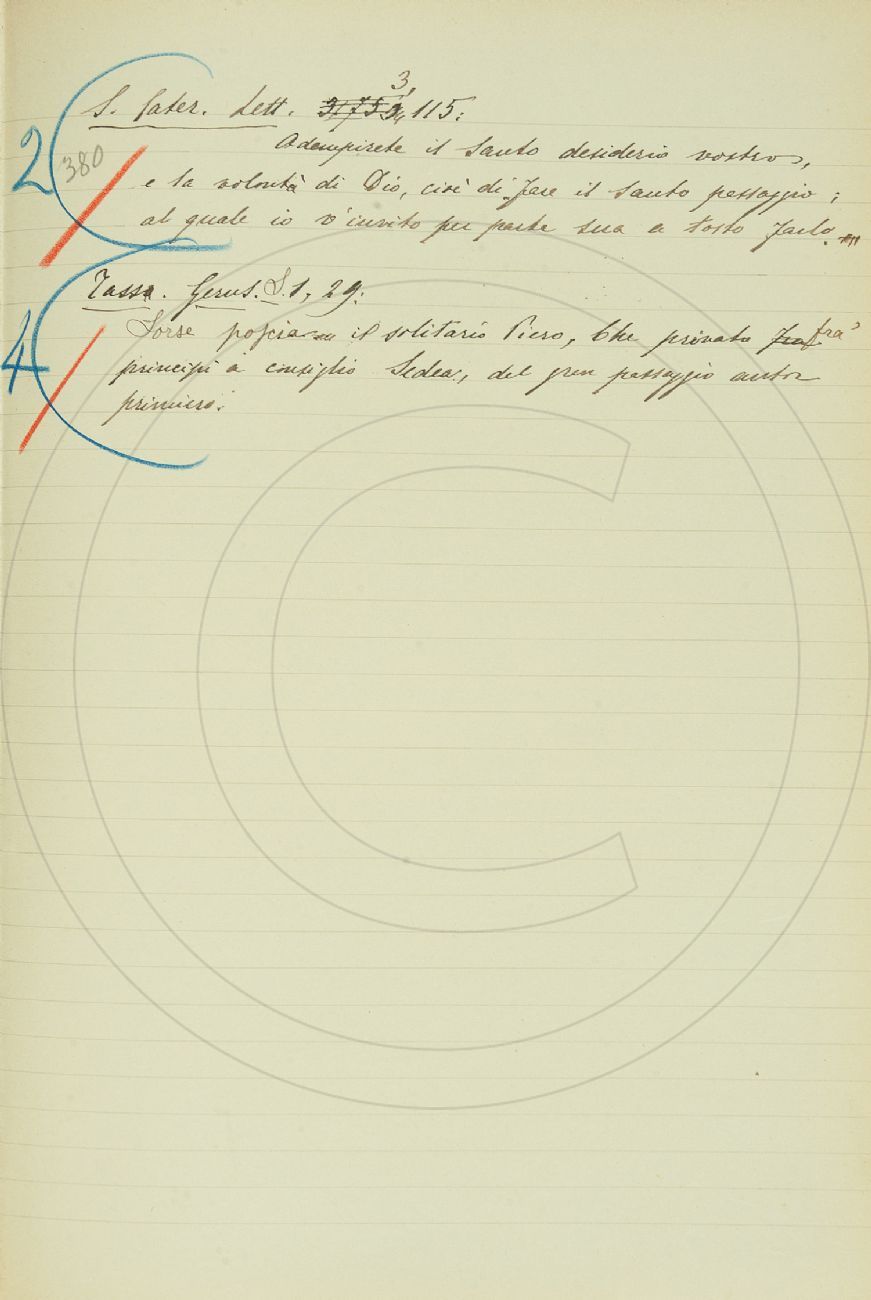 3,
S. Cater. Lett. 115:
2
380
Adempirete il santo desiderio vostro,
e la volontà di Dio, cioè di fare il santo passaggio;
al quale io v'invito per parte sua a tosto farlo.
Tass. Gerus. S. 1, 29:
4
Sorse poscia il solitario Piero, Che privato fra'
principi a consiglio Sedea, del gran passaggio autor
primiero.